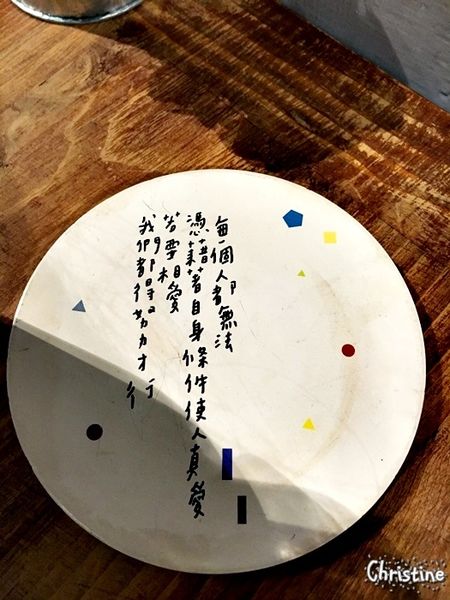 每一個人都無法
憑藉著自身條件使人真愛
若要相愛
我們都得努力才行
Christine